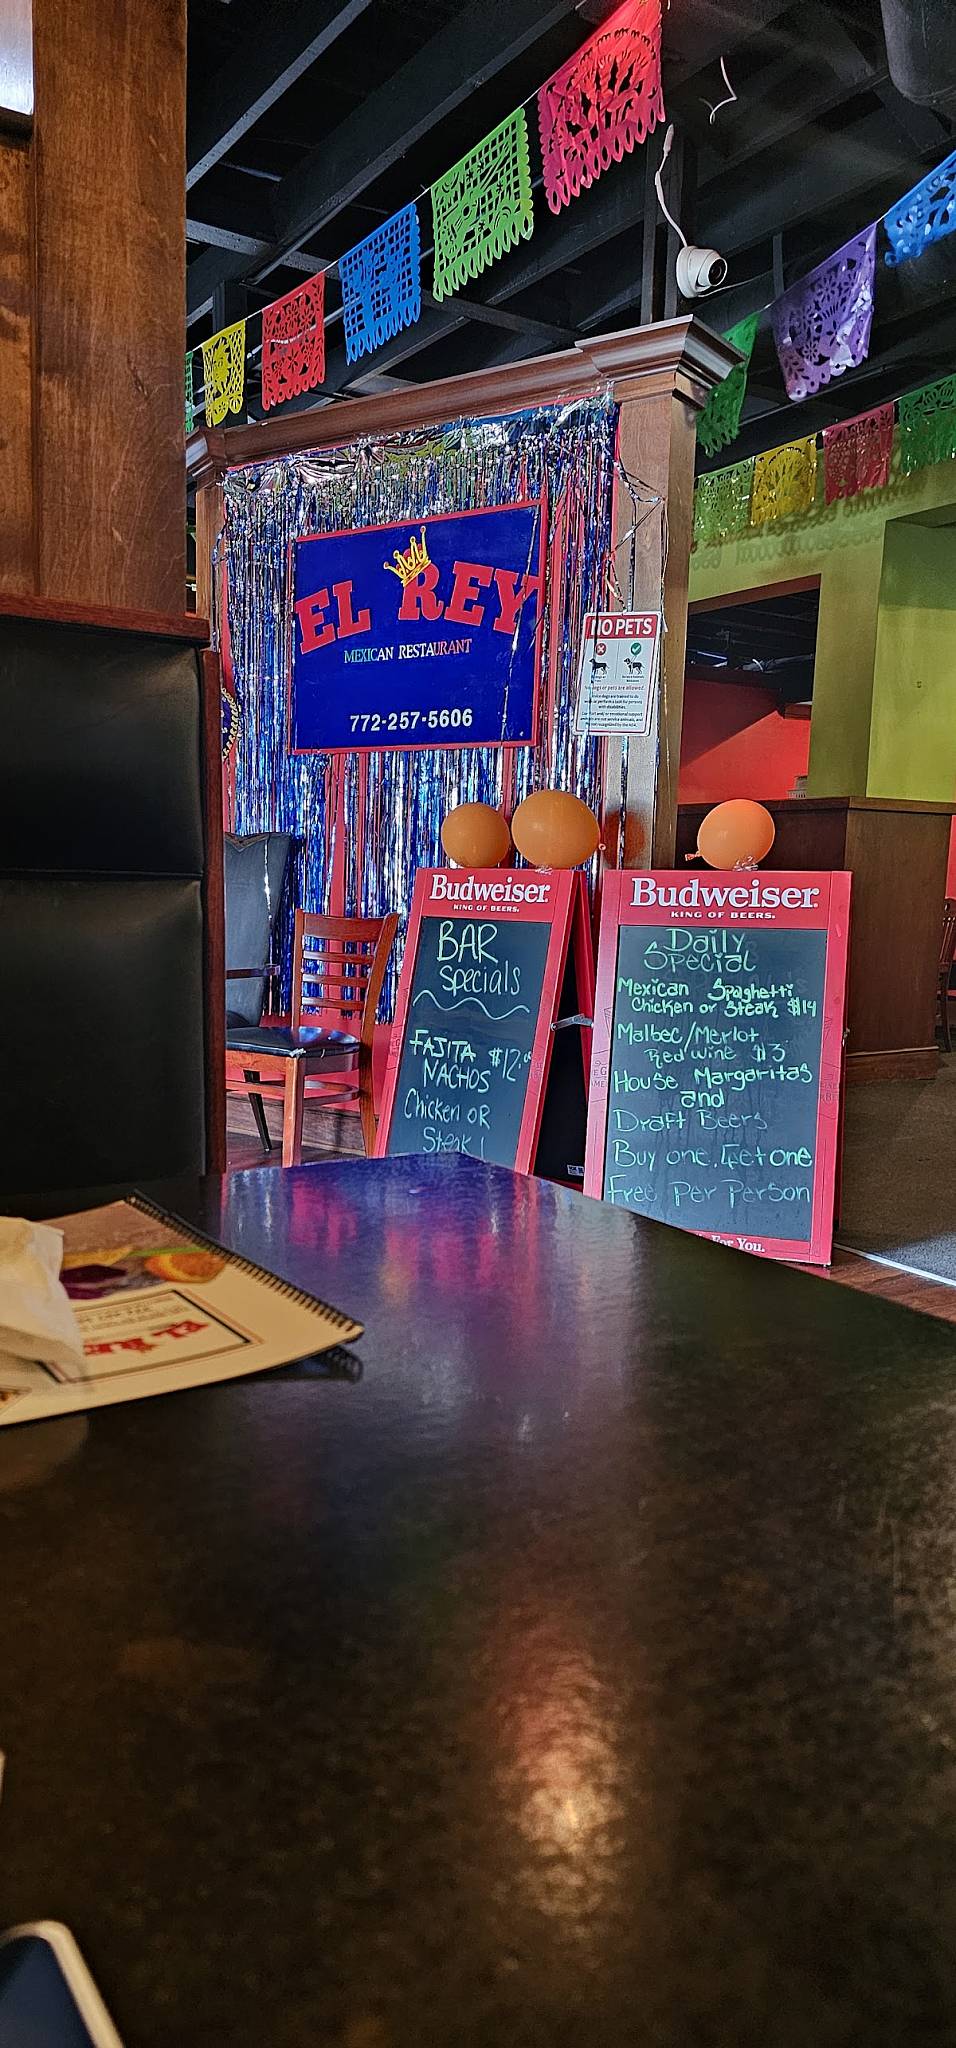 EL REY
MEXICAN RESTAURANT
772-257-5606
NO PETS
dogs or pets are allowed.
Budweiser
KING OF BEERS.
BAR
Specials
FAJITA $12.00
NACHOS
Chicken OR
Steak!
Budweiser
KING OF BEERS.
Daily
Special
Mexican Spaghetti
Chicken or Steak $14
Malbec/Merlot
Red wine $3
House Margaritas
and
Draft Beers
Buy one, Get one
Free Per Person
For You.
EL REY